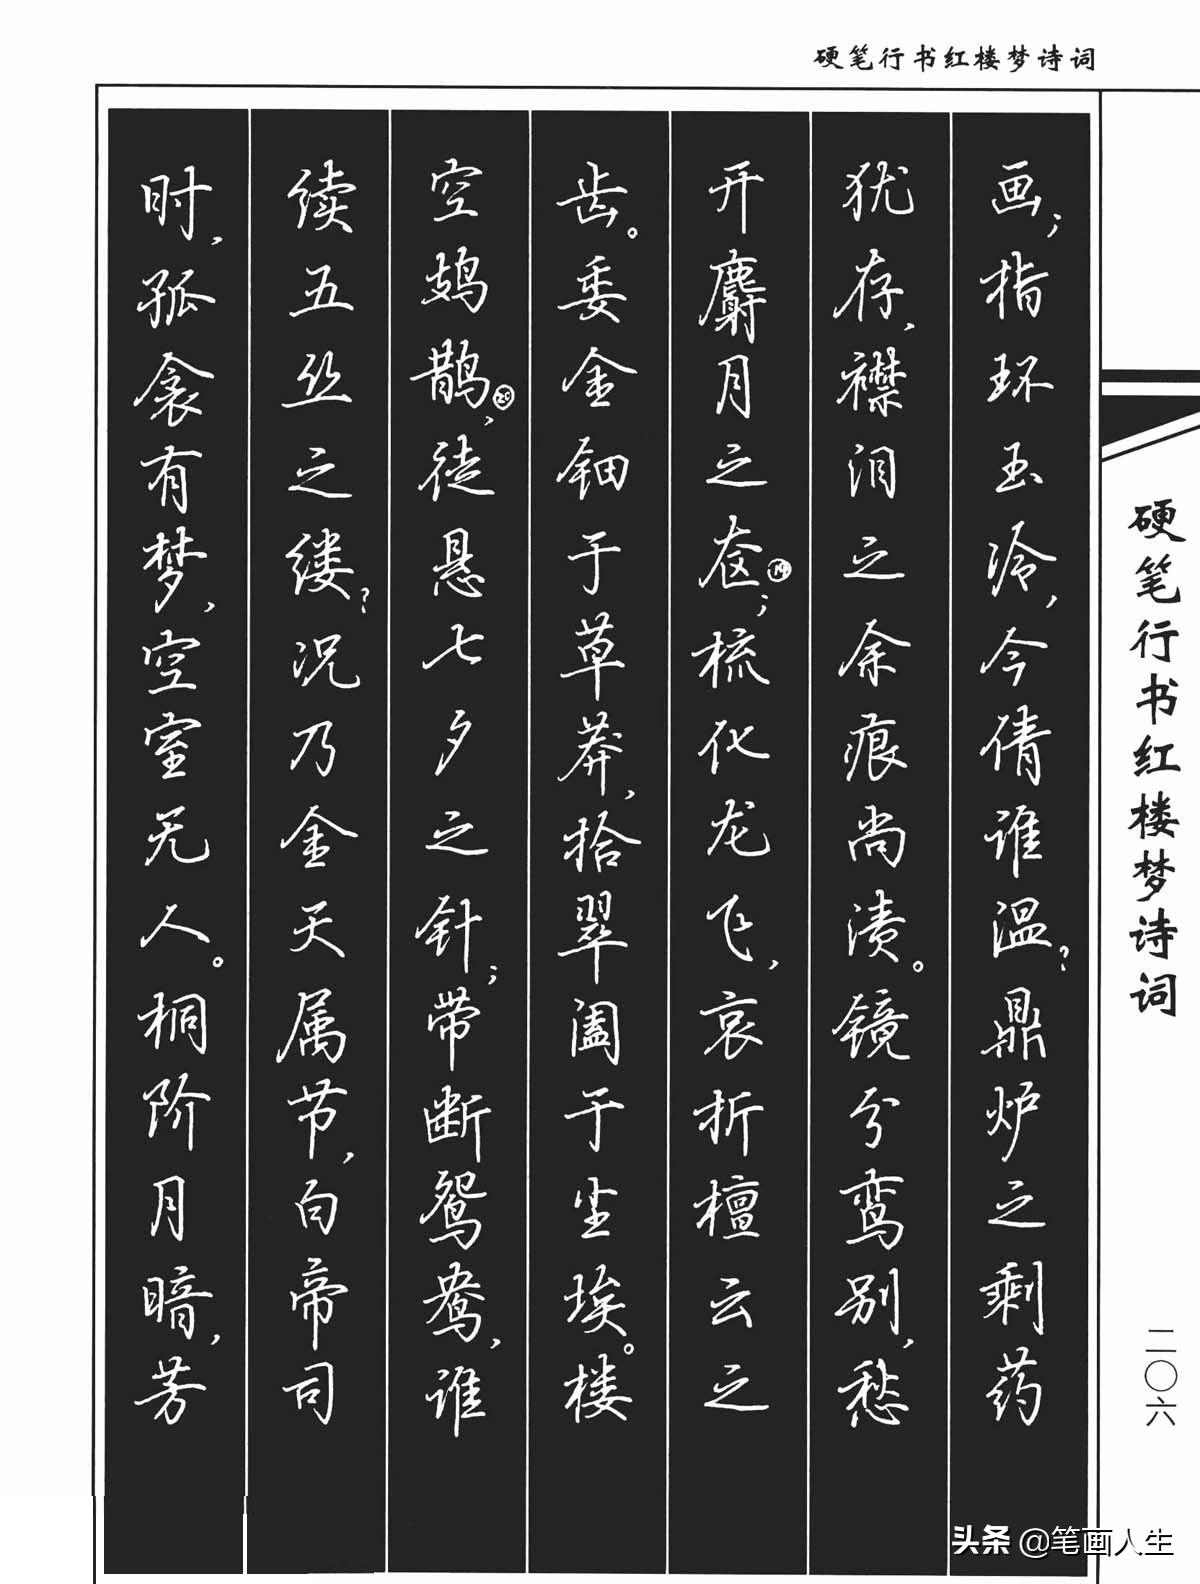 硬笔行书红楼梦诗词
画；指环玉冷，今倩谁温？鼎炉之剩药
犹存，襟泪之余痕尚渍。镜分鸾别，愁
开麝月之奁⑲；梳化龙飞，哀折檀云之
齿。委金钿于草莽，拾翠盍于尘埃。楼
空鳷鹊⑳，徒悬七夕之针；带断鸳鸯，谁
续五丝之缕？况乃金天属节，白帝司
时，孤衾有梦，空室无人。桐阶月暗，芳
硬笔行书红楼梦诗词
二〇六
头条 @笔画人生